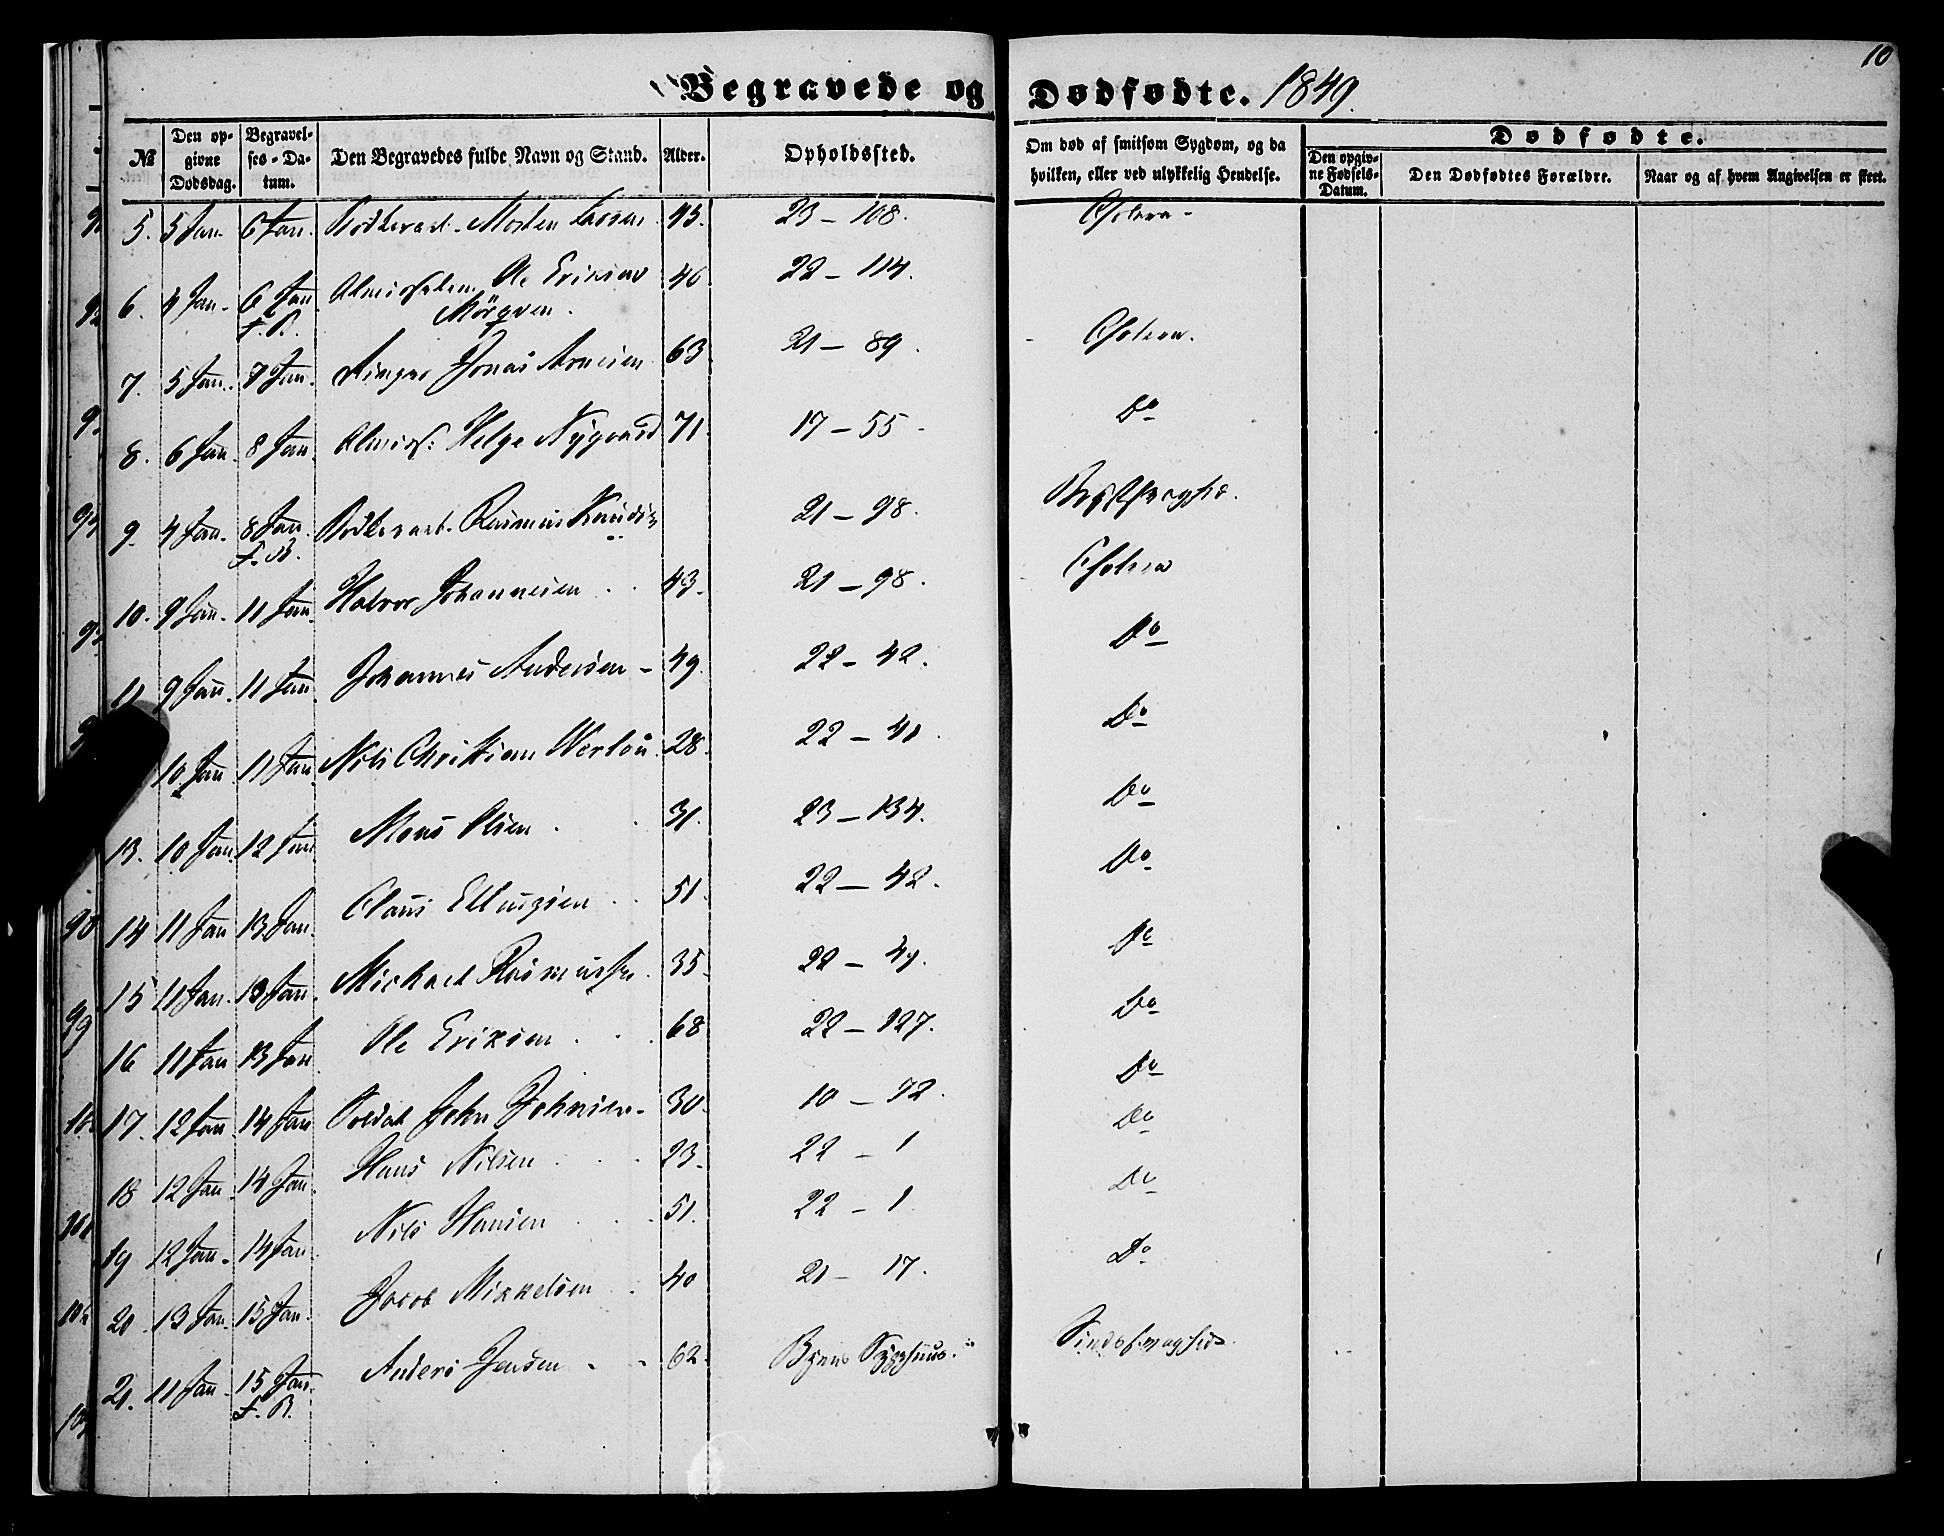 10
Begravede og Dødfødte. 1849.
№ Den opgivne Dødsdag. Begravelses-Datum. Den Begravedes fulde Navn og Stand. Alder. Opholdssted. Om død af smitsom Sygdom, og da hvilken, eller ved ulykkelig Hendelse. Dødfødte. Den opgivne Fødsels-Datum. Den Dødfødtes Forældre. Naar og af hvem Angivelsen er skeet.
5. 5 Jan. 6 Jan. Morten Larsen 45. 23 – 108. Cholera
6. 4 Jan. 6 Jan F. B. Ole Eriksen 46 22 – 114.
7. 5 Jan. 7 Jan. Jonas Arnesen 63 21 – 89. Cholera.
8. 6 Jan. 8 Jan. Helge Nygaard 71. 17 – 55 Do
9. 4 Jan. 8 Jan. F. B. Rasmus Knuds. 21 – 98. Brystsvaghed.
10. 9 Jan. 11 Jan. Halvor Johannesen 43. 21 – 98. Cholera
11 9 Jan. 11 Jan Johannes Andersen 49. 22 – 42. Do
10 Jan. 11 Jan Nils Christian 28. 22 – 41 Do
13. 10 Jan. 12 Jan. Mons Olsen 31. 23 – 134. Do
14 11 Jan 13 Jan. Claus Ellingsen 51. 22 – 42. Do
15 11 Jan. 13 Jan. Michael Rasmussen 35. 22 – 49. Do
16 11 Jan 13 Jan Ole Eriksen 68 22 – 127. Do
17. 12 Jan 14 Jan Soldat John Johnsen 30. 10 – 92. Do
18 12 Jan 14 Jan. Hans Nilsen 23. 22 – 1 Do
19 12 Jan. 14 Jan. Nils Hansen 51. 22 – 1 Do
20 13 Jan. 15 Jan. Jacob Mikkelsen 40 21 – 17. Do
21. 11 Jan. 15 Jan. F. B. Anders Jensen 62. Byens Sygehuus. Sindssvaghed